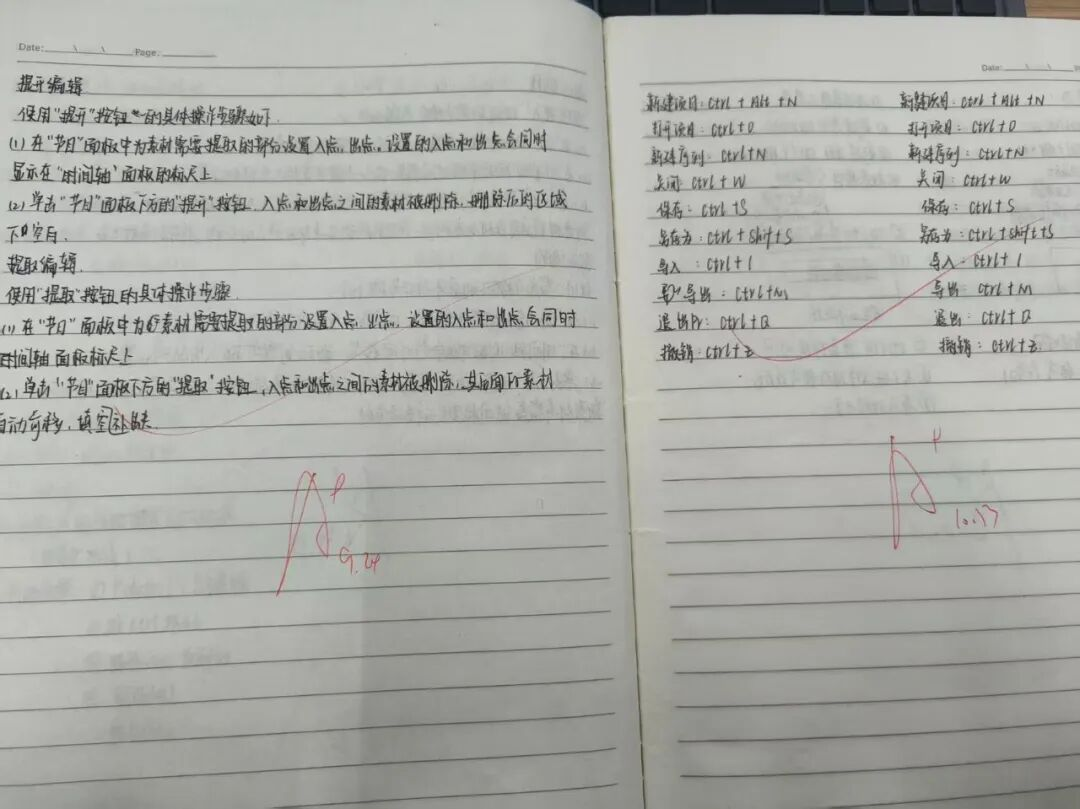 Date: \ \ Page:
提升编辑
使用"提升"按钮的具体操作步骤如下.
(1) 在"节目"面板中为素材需要提取的部分设置入点,出点,设置的入点和出点会同时
显示在"时间轴"面板的标尺上
(2) 单击"节目"面板下方的"提升"按钮,入点和出点之间的素材被删除,删除后的区域
下空白.
提取编辑.
使用"提取"按钮的具体操作步骤.
(1) 在"节目"面板中为素材需要提取的部分设置入点,出点,设置的入点和出点会同时
时间轴面板标尺上
(2) 单击"节目"面板下方的"提取"按钮,入点和出点之间的素材被删除,其后面的素材
自动前移,填空补缺.
A+
9.24
Date: \ \ P
新建项目: Ctrl + Alt + N 新建项目: Ctrl + Alt + N
打开项目: Ctrl+O 打开项目: Ctrl+O
新建序列: Ctrl+N 新建序列: Ctrl+N
关闭: Ctrl+W 关闭: Ctrl+W
保存: Ctrl+S 保存: Ctrl+S
另存为: Ctrl+Shift+S 另存为: Ctrl+Shift+S
导入: Ctrl+I 导入: Ctrl+I
导出: Ctrl+M 导出: Ctrl+M
退出Pr: Ctrl+Q 退出: Ctrl+Q
撤销: Ctrl+Z 撤销: Ctrl+Z.
A+
10.13